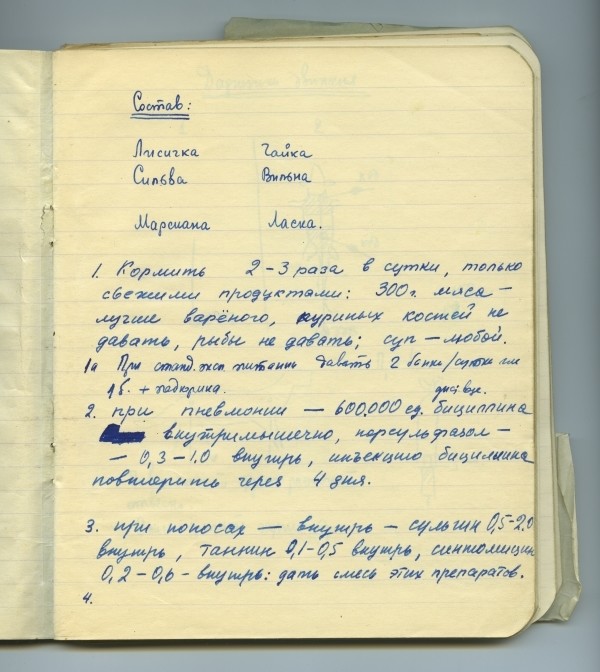 Состав:
Лисичка Чайка
Сильва Вильна
Марсиана Ласка.
1. Кормить 2–3 раза в сутки, только
свежими продуктами: 300 г. мяса –
лучше варёного, куриных костей не
давать, рыбы не давать; суп – любой.
1а При станд. экс. питании давать 2 банки/сутки или
1б. + подкормка.
2. при пневмонии — 600.000 ед. бициллина
внутримышечно, норсульфазол –
– 0,3 – 1.0 внутрь, инъекцию бициллина
повторить через 4 дня.
3. при поносах — внутрь – сульгин 0,5–2,0
внутрь, таннин 0,1–0,5 внутрь, синтомицин
0,2 – 0,6 – внутрь: дать смесь этих препаратов.
4.